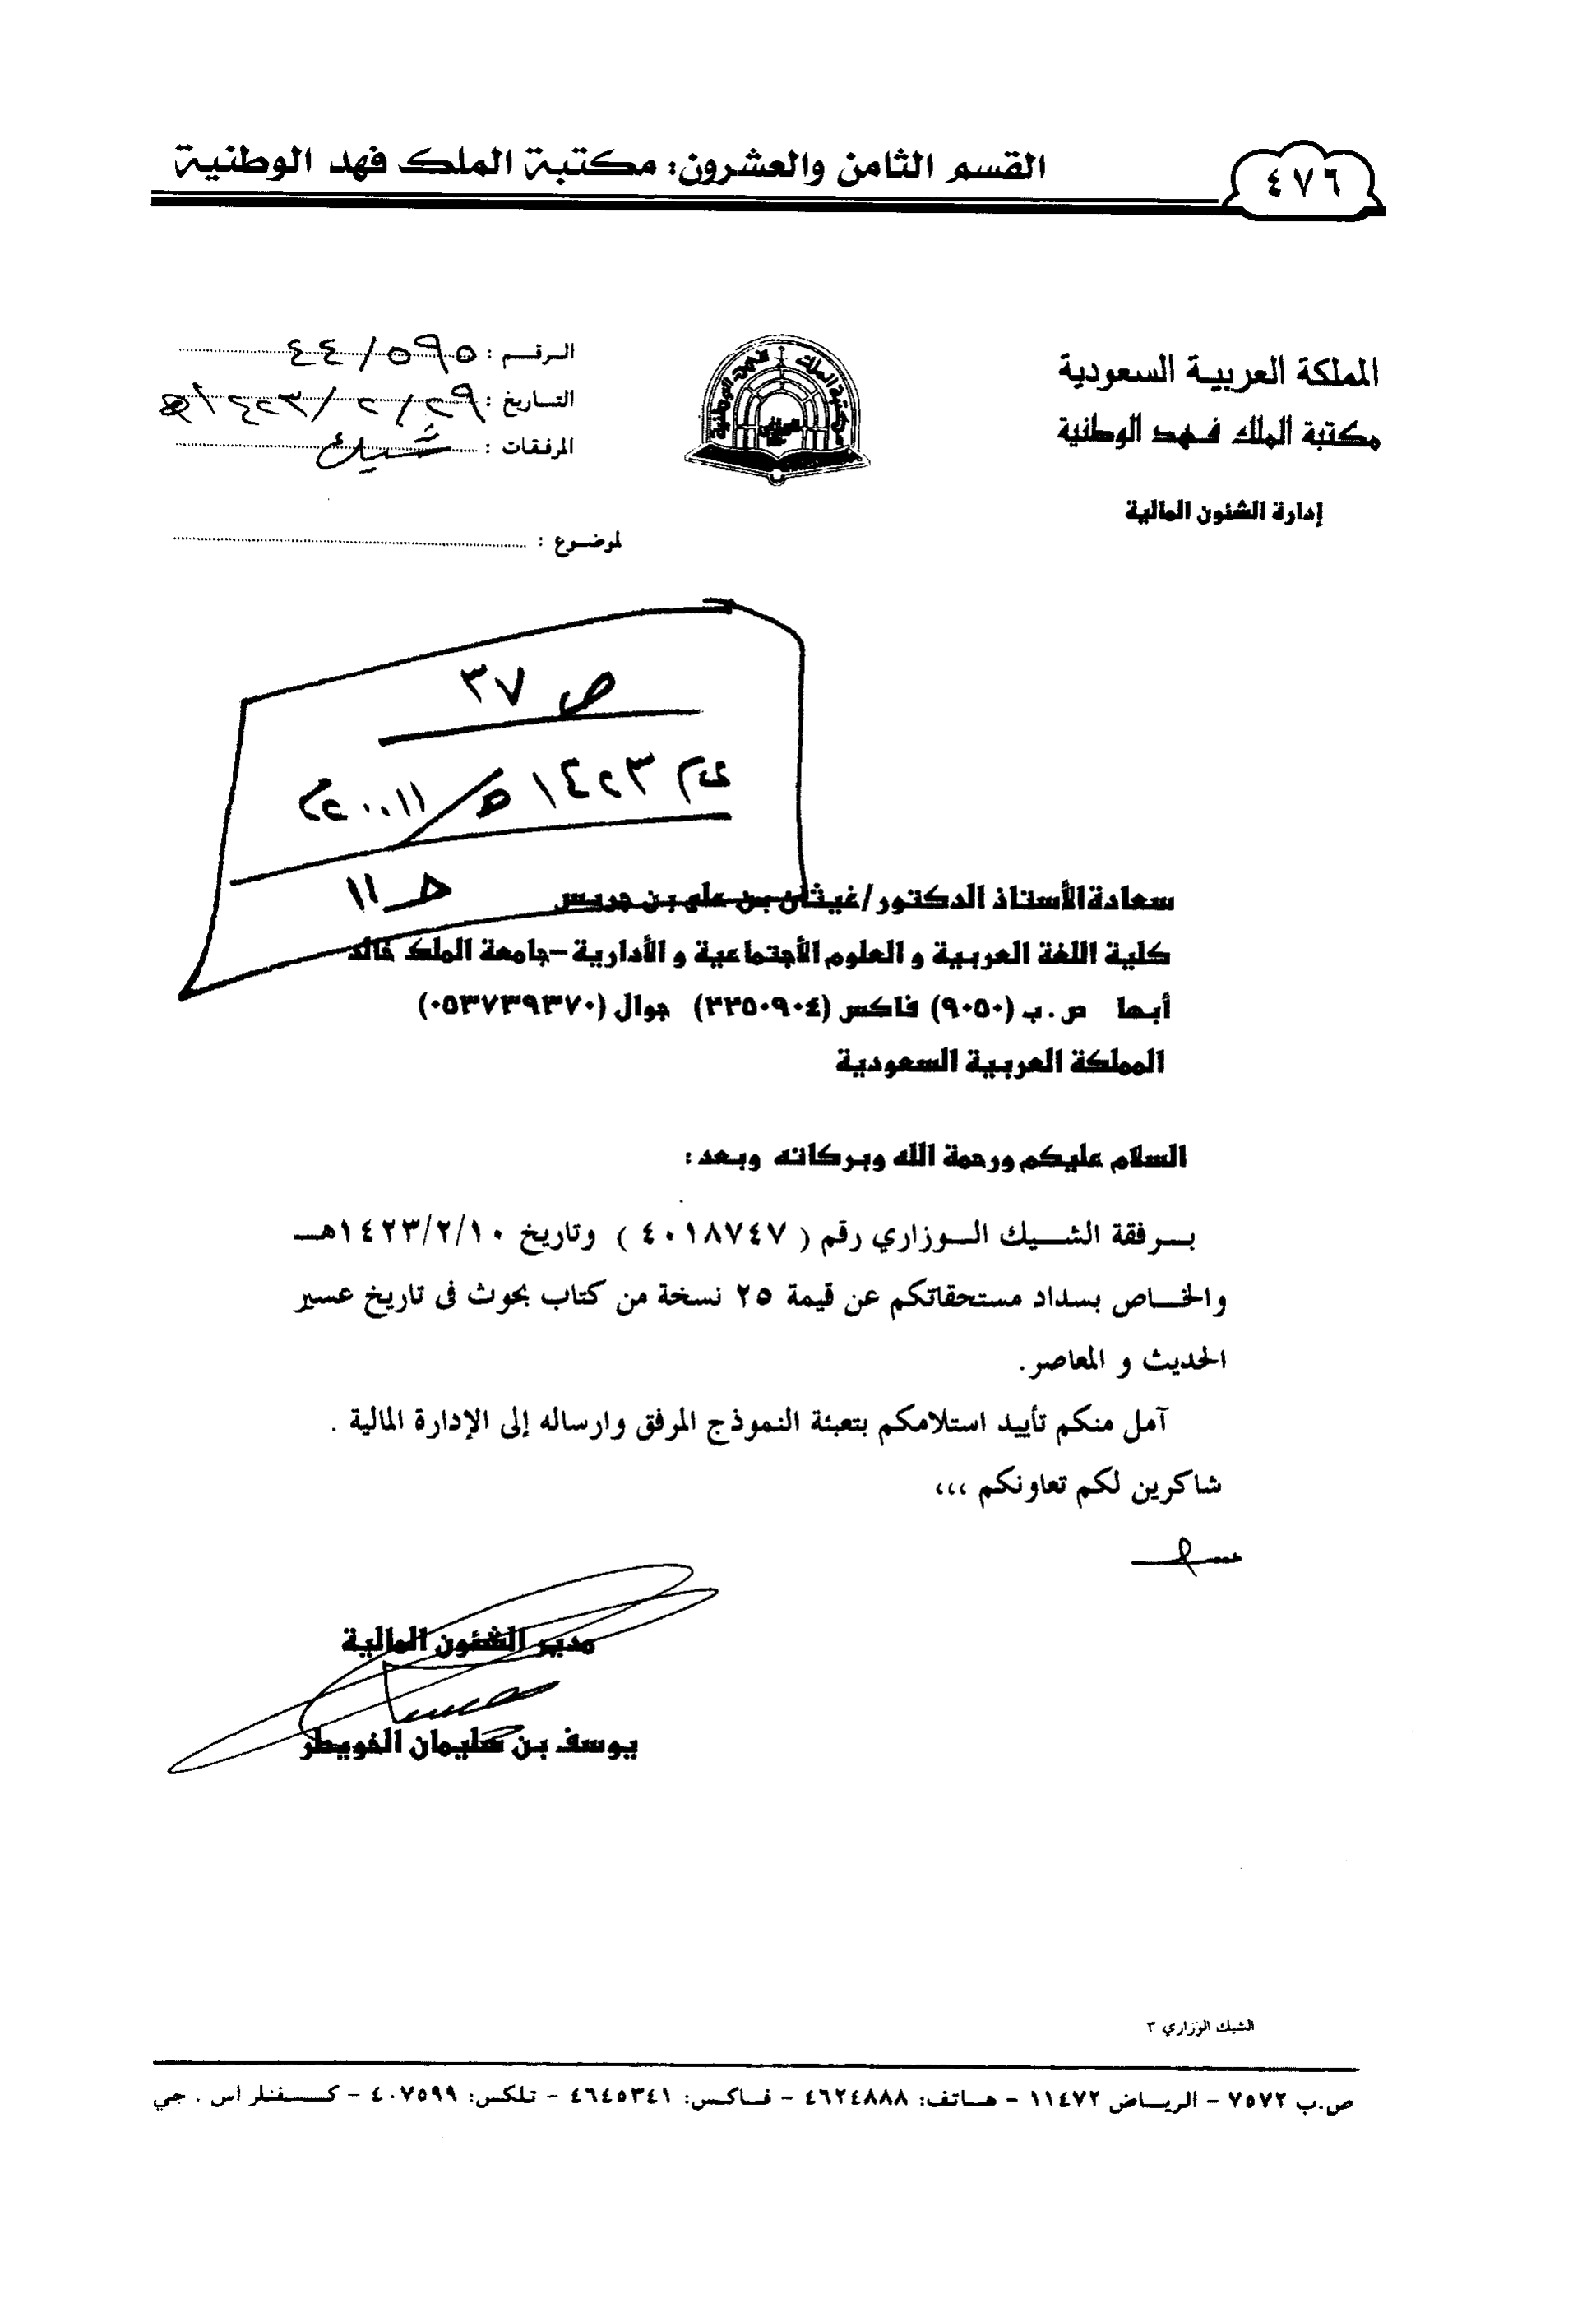 القسم الثامن والعشرون: مكتبة الملك فهد الوطنية
٤٧٦
المملكة العربية السعودية
مكتبة الملك فهد الوطنية
إدارة الشئون المالية
مكتبة الملك فهد الوطنية
الرقم : ٤٤/٥٩٥
التاريخ : ١٤٢٣/٢/٢٩هـ
المرفقات : شيك
لموضوع :
ص ٣٧
١٤٢٣هـ / ٢٠٠١١م
هـ ١١
سعادة الأستاذ الدكتور/غيثان بن علي بن جريس
كلية اللغة العربية و العلوم الأجتماعية و الأدارية –جامعة الملك خالد
أبها ص.ب (٩٠٥٠) فاكس (٢٢٥٠٩٠٤) جوال (٠٥٣٧٣٩٣٧٠)
المملكة العربية السعودية
السلام عليكم ورحمة الله وبركاته وبعد :
برفقة الشيك الوزاري رقم ( ٤٠١٨٧٤٧ ) وتاريخ ١٤٢٣/٢/١٠هـ
والخاص بسداد مستحقاتكم عن قيمة ٢٥ نسخة من كتاب بحوث فى تاريخ عسير
الحديث و المعاصر.
آمل منكم تأييد استلامكم بتعبئة النموذج المرفق وارساله إلى الإدارة المالية .
شاكرين لكم تعاونكم ،،،
مدير الشئون المالية
يوسف بن سليمان الخويطر
الشيك الوزاري ٣
ص.ب ٧٥٧٢ – الرياض ١١٤٧٢ – هاتف: ٤٦٢٤٨٨٨ – فاكس: ٤٦٤٥٣٤١ – تلكس: ٤٠٧٥٩٩ – كفنلر اس . جي